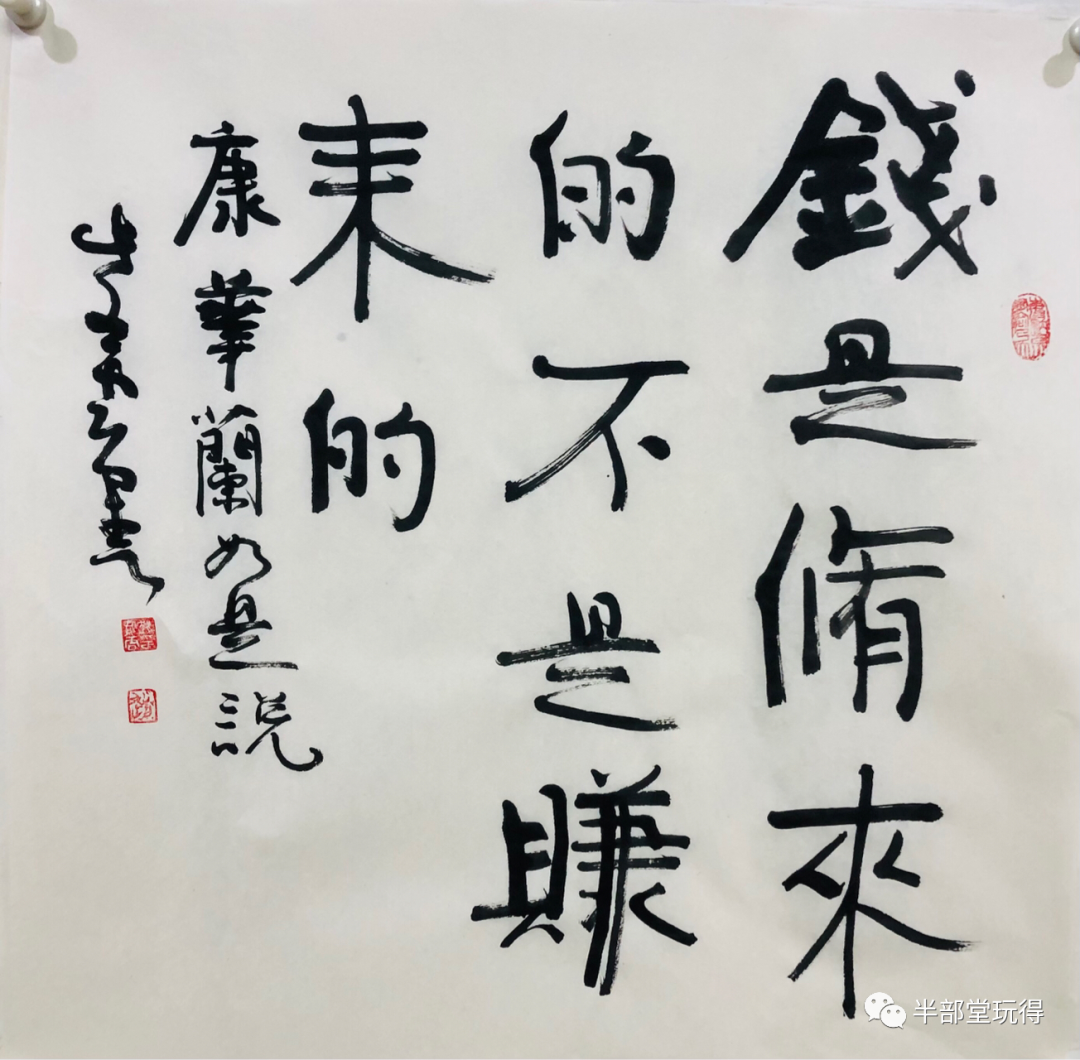 錢是脩來
的不是賺
来的
康華蘭如是説
半部堂玩得